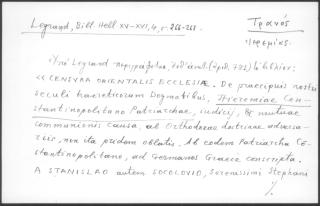 Legrand, Bibl. Hell XV-XVI, 4, σ. 266-268.
Τρανός
Ἱερεμίας.
Ὑπὸ Legrand περιγράφεται,
« CENSVRA ORIENTALIS ECCLESIÆ. De praecipuis nostri
seculi haereticorum Dogmatibus, Hieremiae Con-
stantinopolitano Patriarchae, iudicij, & mutuae
communionis causa, ab Orthodoxae doctrinae adversa-
riis, non ita pridem oblatis. Ab eodem Patriarcha Co-
stantinopolitano, ad Germanos Graece conscripta.
A STANISLAO autem SOCOLOVIO, Serenissimi Stephani